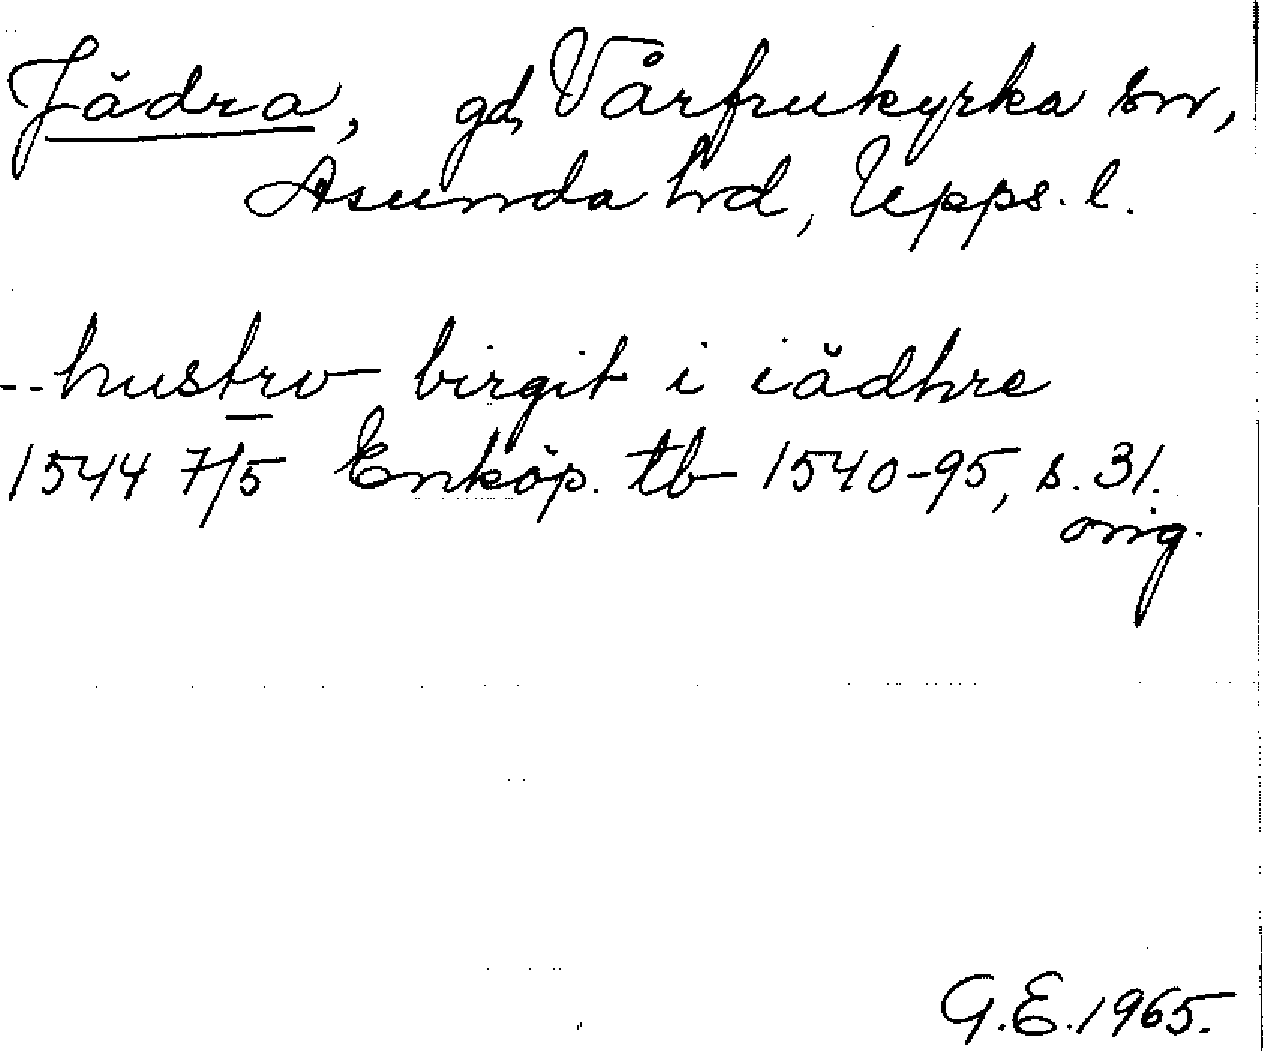 Jädra, gd, Vårfrukyrka sn,
Åsunda hd, Upps. l.
-- hustrv birgit i iädhre
1544 7/5 Enköp. tb 1540-95, s. 31.
orig.
G.E. 1965.